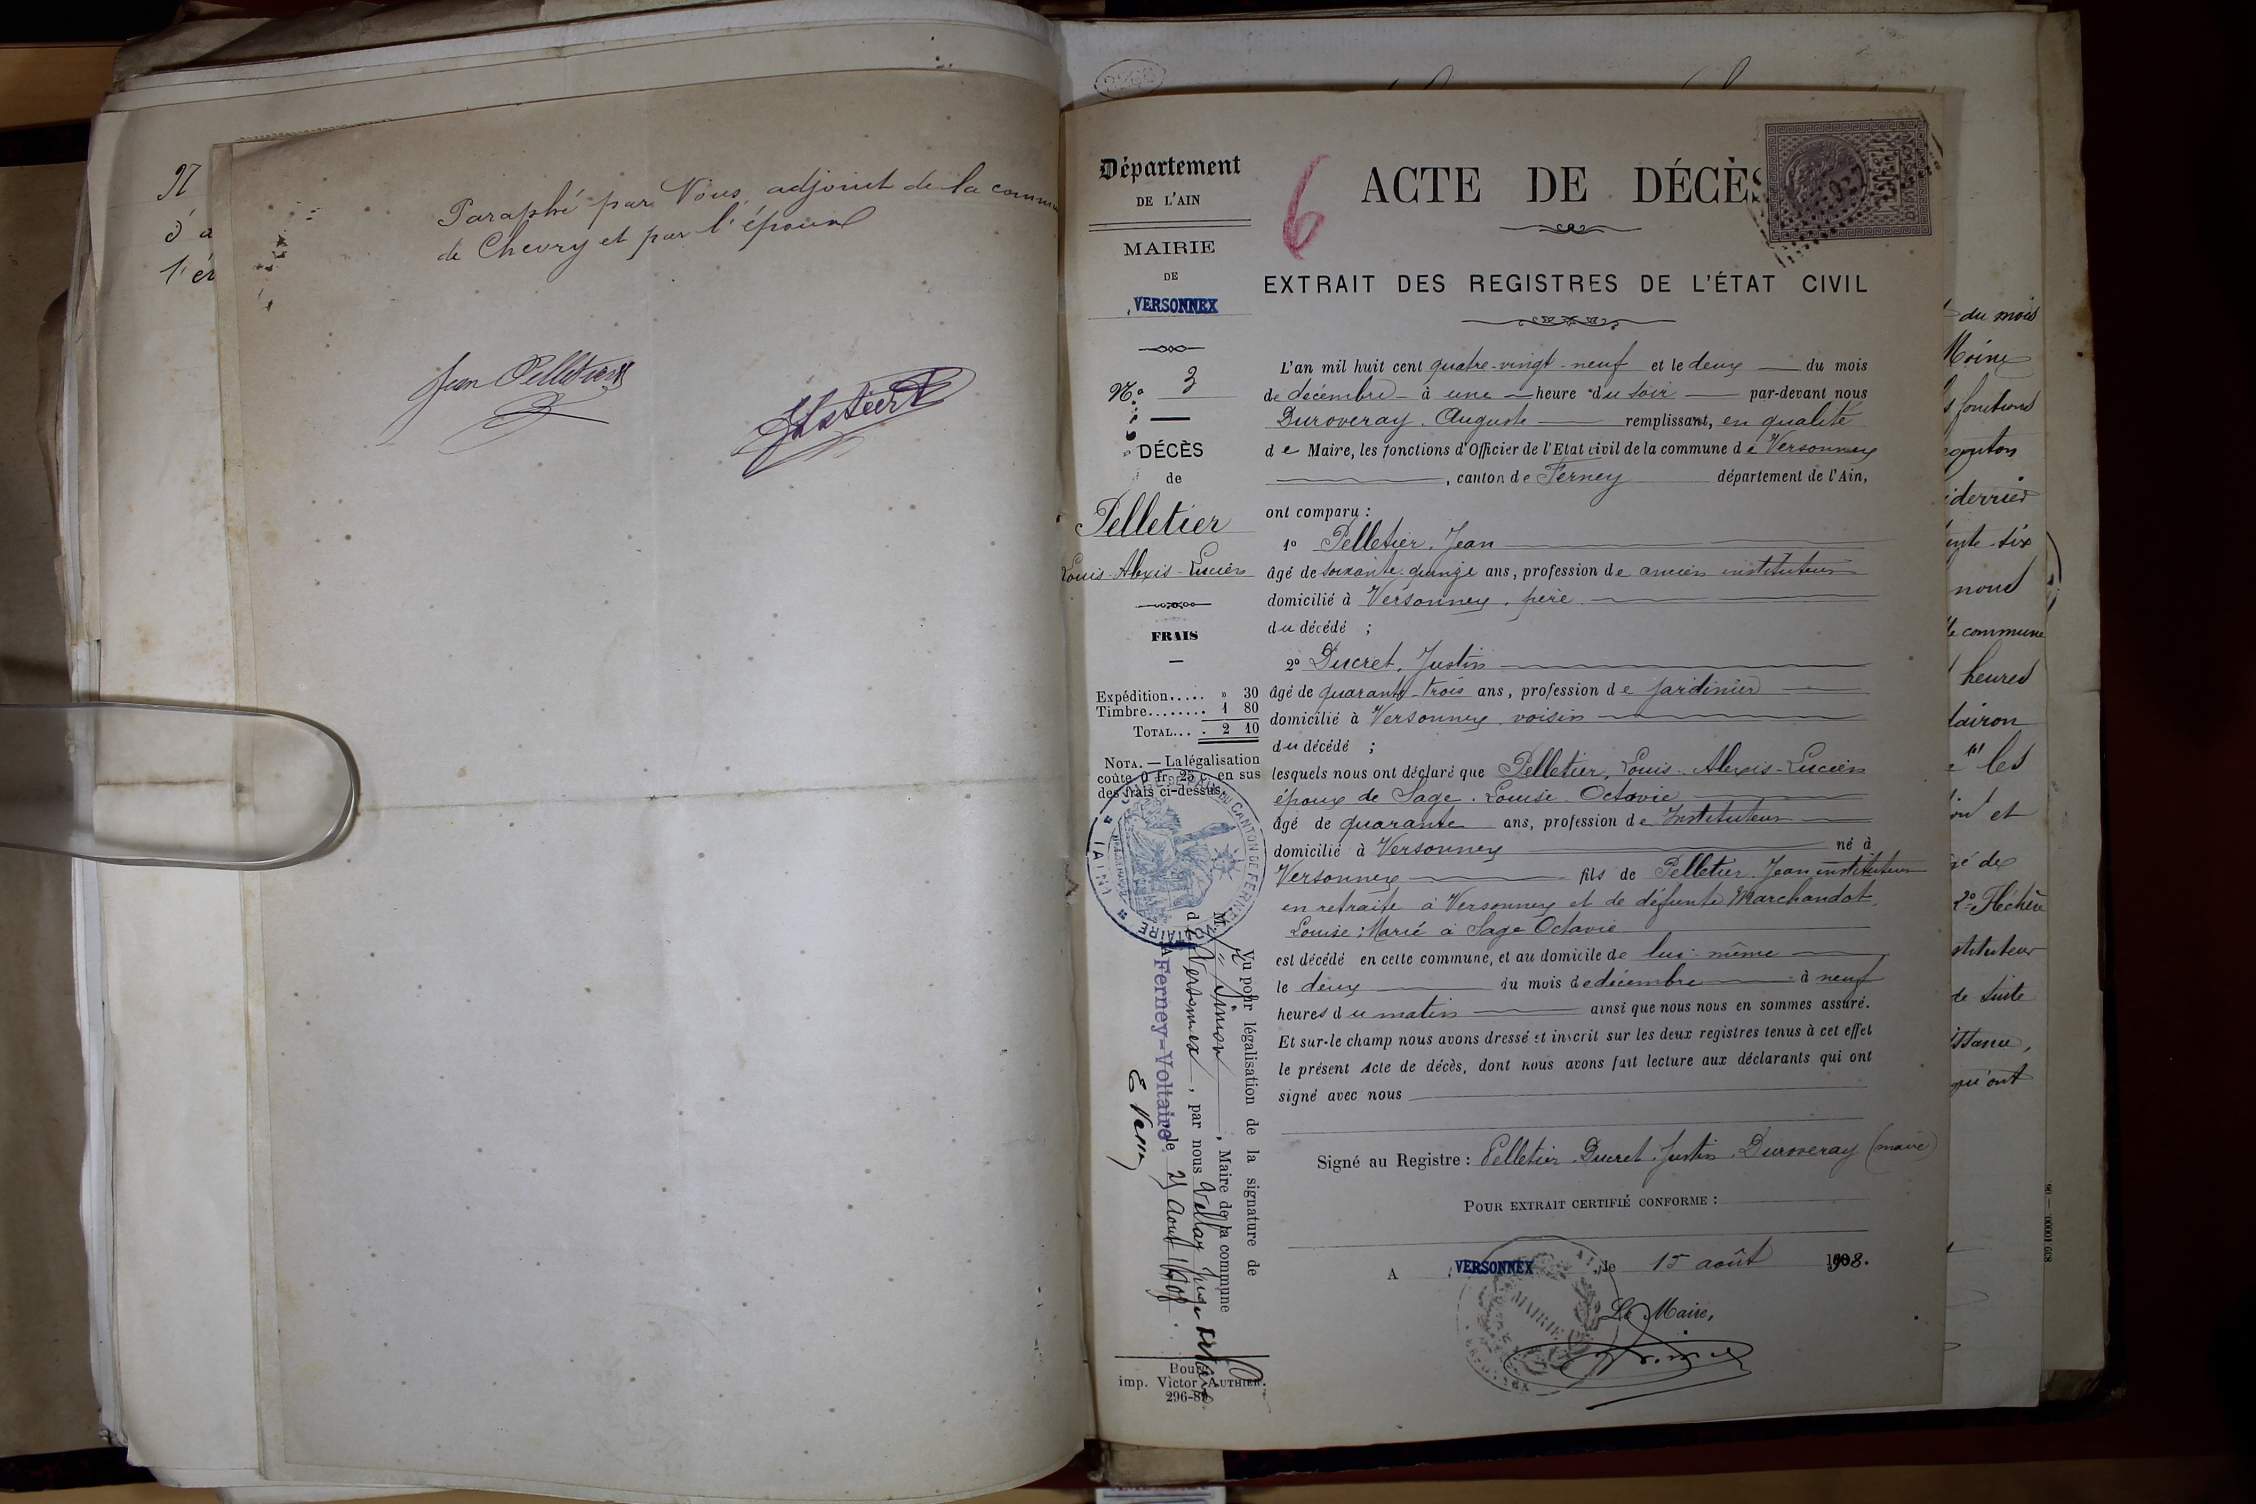 Paraphé par Nous, adjoint de la commune
de Chevry et par l'époux
Jean Pelletier
Département
DE L'AIN
MAIRIE
DE
VERSONNEX
N° 3
DÉCÈS
de
Pelletier
Louis-Alexis-Lucien
FRAIS
Expédition..... » 30
Timbre........ 1 80
TOTAL... . 2 10
NOTA. — La légalisation
coûte 0 fr. 25 c. en sus
des frais ci-dessus.
Vu pour légalisation de la signature de
M. Simon, Maire de la commune
de Versonnex, par nous
A Ferney-Voltaire le août
Bourg
imp. Victor AUTHIER.
6
ACTE DE DÉCÈS
EXTRAIT DES REGISTRES DE L'ÉTAT CIVIL
L'an mil huit cent quatre-vingt-neuf et le deux du mois
de décembre à une heure du soir par-devant nous
Duroveray Auguste remplissant, en qualité
de Maire, les fonctions d'Officier de l'Etat civil de la commune de Versonnex
, canton de Ferney département de l'Ain,
ont comparu :
1° Pelletier, Jean
âgé de soixante-quinze ans, profession de ancien instituteur
domicilié à Versonnex, père
du décédé ;
2° Ducret, Justin
âgé de quarante-trois ans, profession de jardinier
domicilié à Versonnex voisin
du décédé ;
lesquels nous ont déclaré que Pelletier, Louis-Alexis-Lucien
époux de Sage. Louise Octavie
âgé de quarante ans, profession de Instituteur
domicilié à Versonnex né à
Versonnex fils de Pelletier Jean instituteur
en retraite à Versonnex et de défunte Marchandot
Louise ; Marié à Sage Octavie
est décédé en cette commune, et au domicile de lui-même
le deux du mois de décembre à neuf
heures du matin ainsi que nous nous en sommes assuré.
Et sur-le champ nous avons dressé et inscrit sur les deux registres tenus à cet effet
le présent Acte de décès, dont nous avons fait lecture aux déclarants qui ont
signé avec nous
Signé au Registre : Pelletier. Ducret Justin. Duroveray (maire)
POUR EXTRAIT CERTIFIÉ CONFORME :
A VERSONNEX, le 15 août 1908.
Le Maire,
du mois
fonctions
nous
commune
heures
les
et
de suite
qu'ont